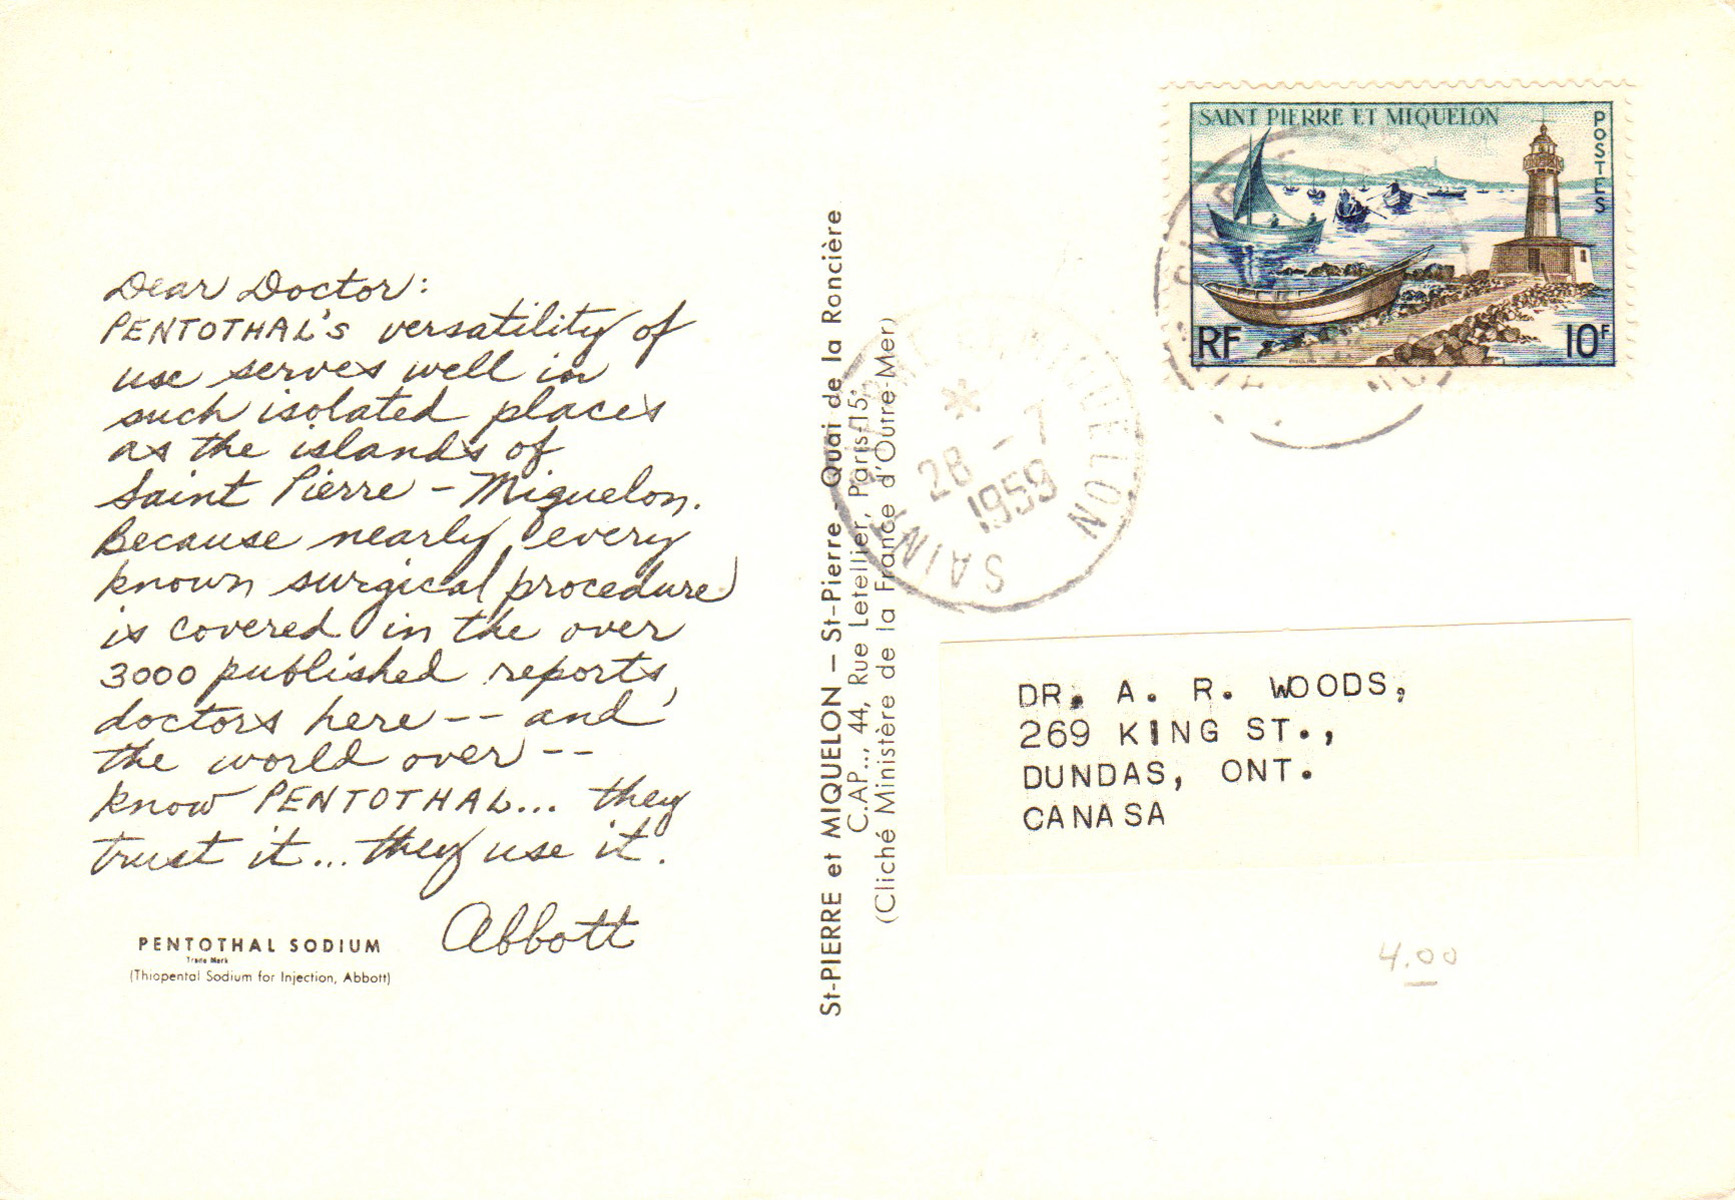 Dear Doctor:
PENTOTHAL'S versatility of
use serves well in
such isolated places
as the islands of
Saint Pierre - Miquelon.
Because nearly every
known surgical procedure
is covered in the over
3000 published reports,
doctors here -- and
the world over --
know PENTOTHAL... they
trust it... they use it.
Abbott
PENTOTHAL SODIUM
Trade Mark
(Thiopental Sodium for Injection, Abbott)
St-PIERRE et MIQUELON — St-Pierre - Quai de la Roncière
C.AP.., 44, Rue Letellier, Paris-15e
(Cliché Ministère de la France d'Outre-Mer)
SAINT PIERRE ET MIQUELON
POSTES
RF
10F
SAINT PIERRE MIQUELON
28 - 7
1959
DR. A. R. WOODS,
269 KING ST.,
DUNDAS, ONT.
CANASA
4.00